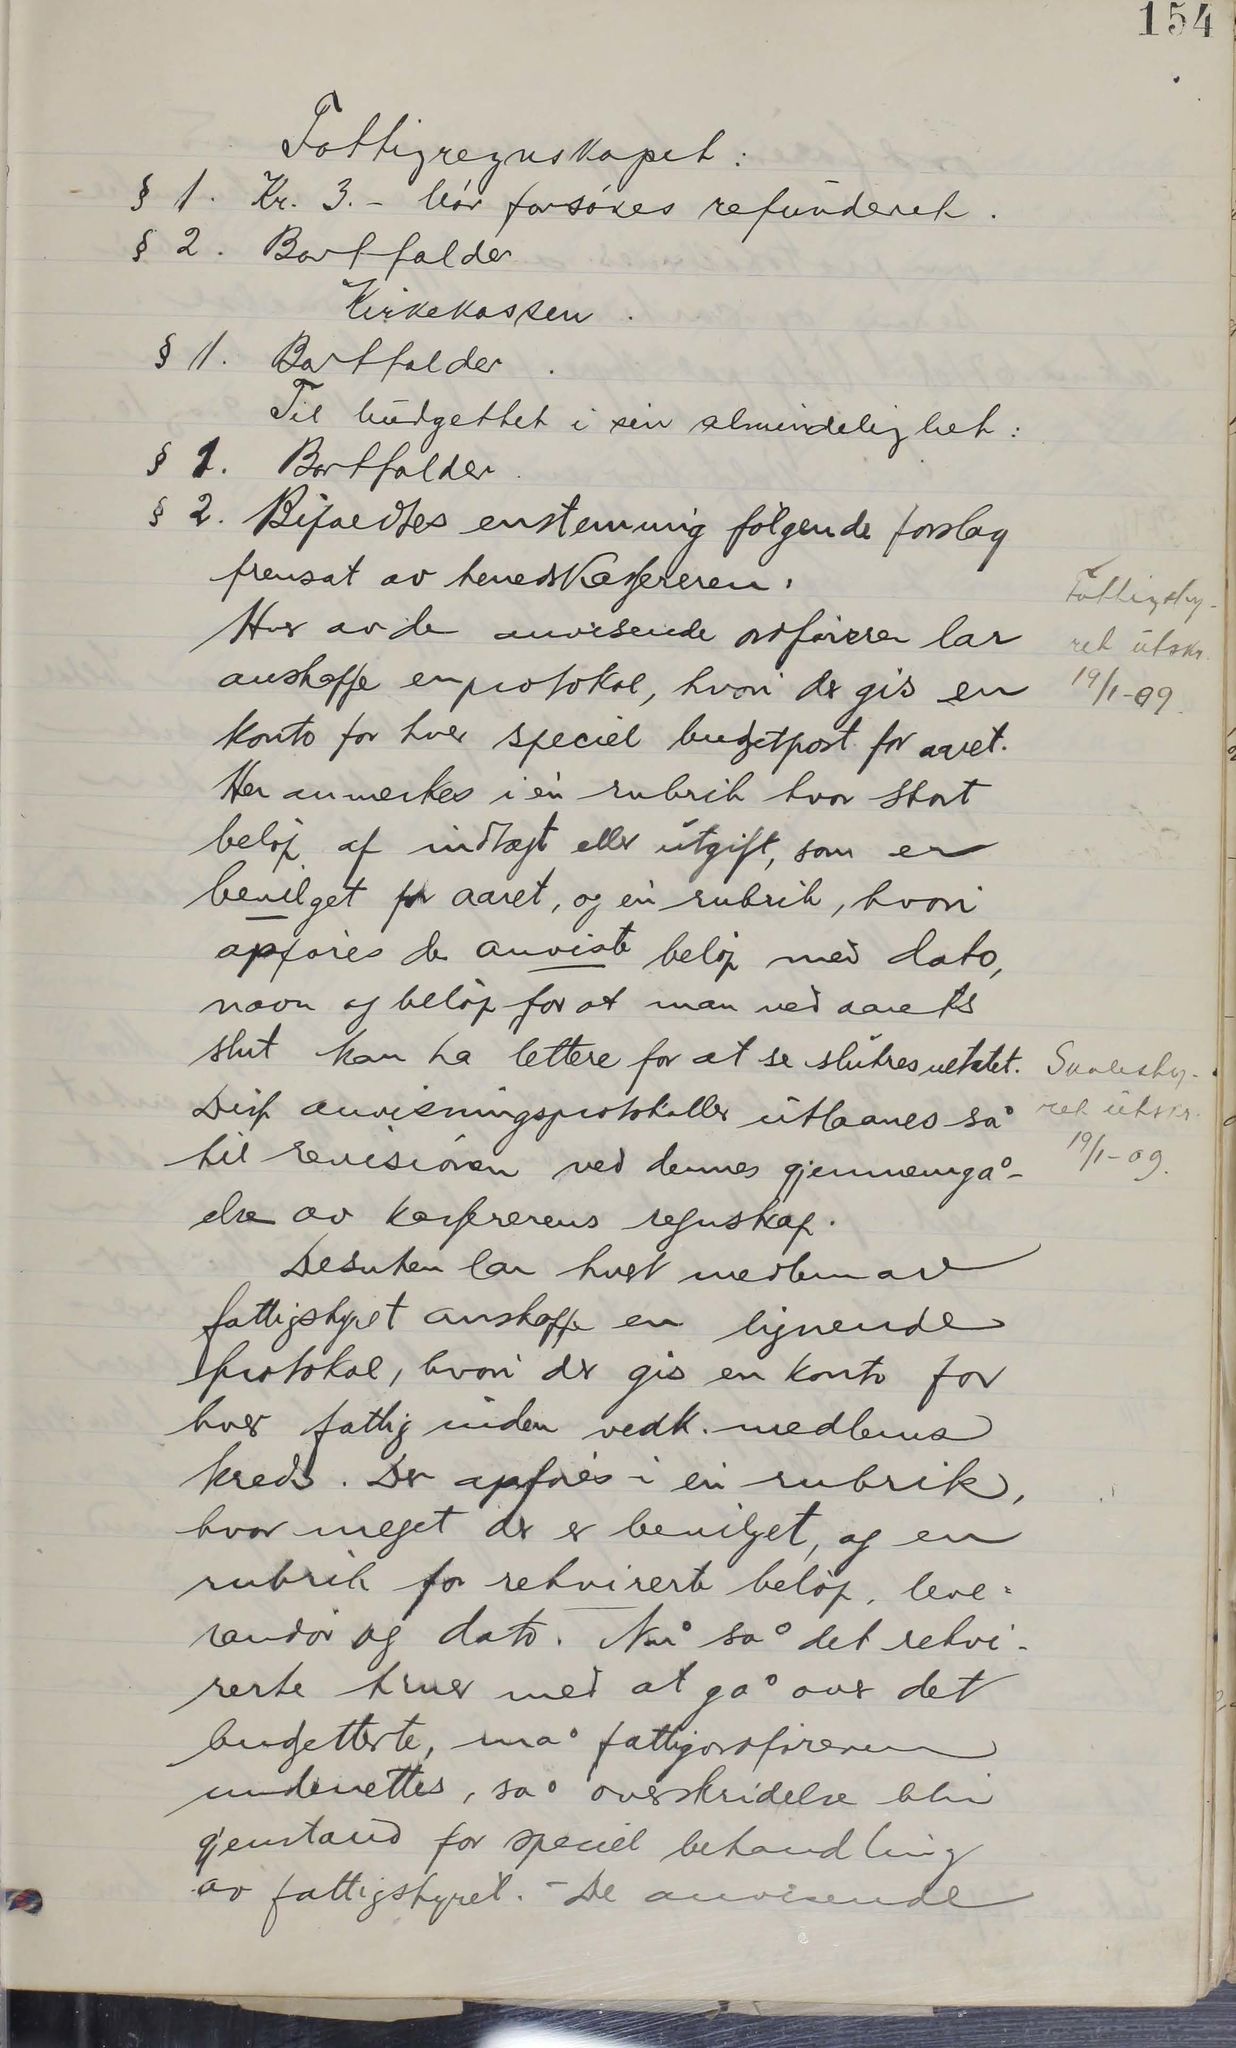 154
Fattigregnskapet:
§ 1. Kr. 3.- bör forsökes refunderet.
§ 2. Bortfalder
Kirkekassen.
§ 1. Bortfalder.
Til budgettet i sin almindelighet:
§ 1. Bortfalder.
§ 2. Bifaldtes enstemmig følgende forslag
fremsat av herredskassereren:
Hver av de anvisende ordförere lar
anskaffe en protokol, hvori der gis en
konto for hver speciel budgetpost for aaret.
Her anmerkes i én rubrik hvor stort
beløp af indtægt eller utgift, som er
bevilget for aaret, og én rubrik, hvori
opføres de anviste beløp med dato,
navn og beløp for at man ved aarets
slut kan ha lettere for at se slutresultatet.
Disse anvisningsprotokoller utlaanes så
til revisionen ved dennes gjennemgå-
else av kassererens regnskap.
Desuten lar hvert medlem av
fattigstyret anskaffe en lignende
protokol, hvori der gis en konto for
hver fattig inden vedk. medlems
kreds. Der opføres i én rubrik,
hvor meget der er bevilget, og en
rubrik for rekvirerte beløp, leve=
randør og dato. Når så det rekvi-
rerte truer med at gå over det
budgetterte, må fattigordføreren
underrettes, så overskridelse blir
gjenstand for speciel behandling
av fattigstyret. - De anvisende
Fattigsty-
ret utskr.
19/1-09.
Skolesty-
ret utskr.
19/1-09.